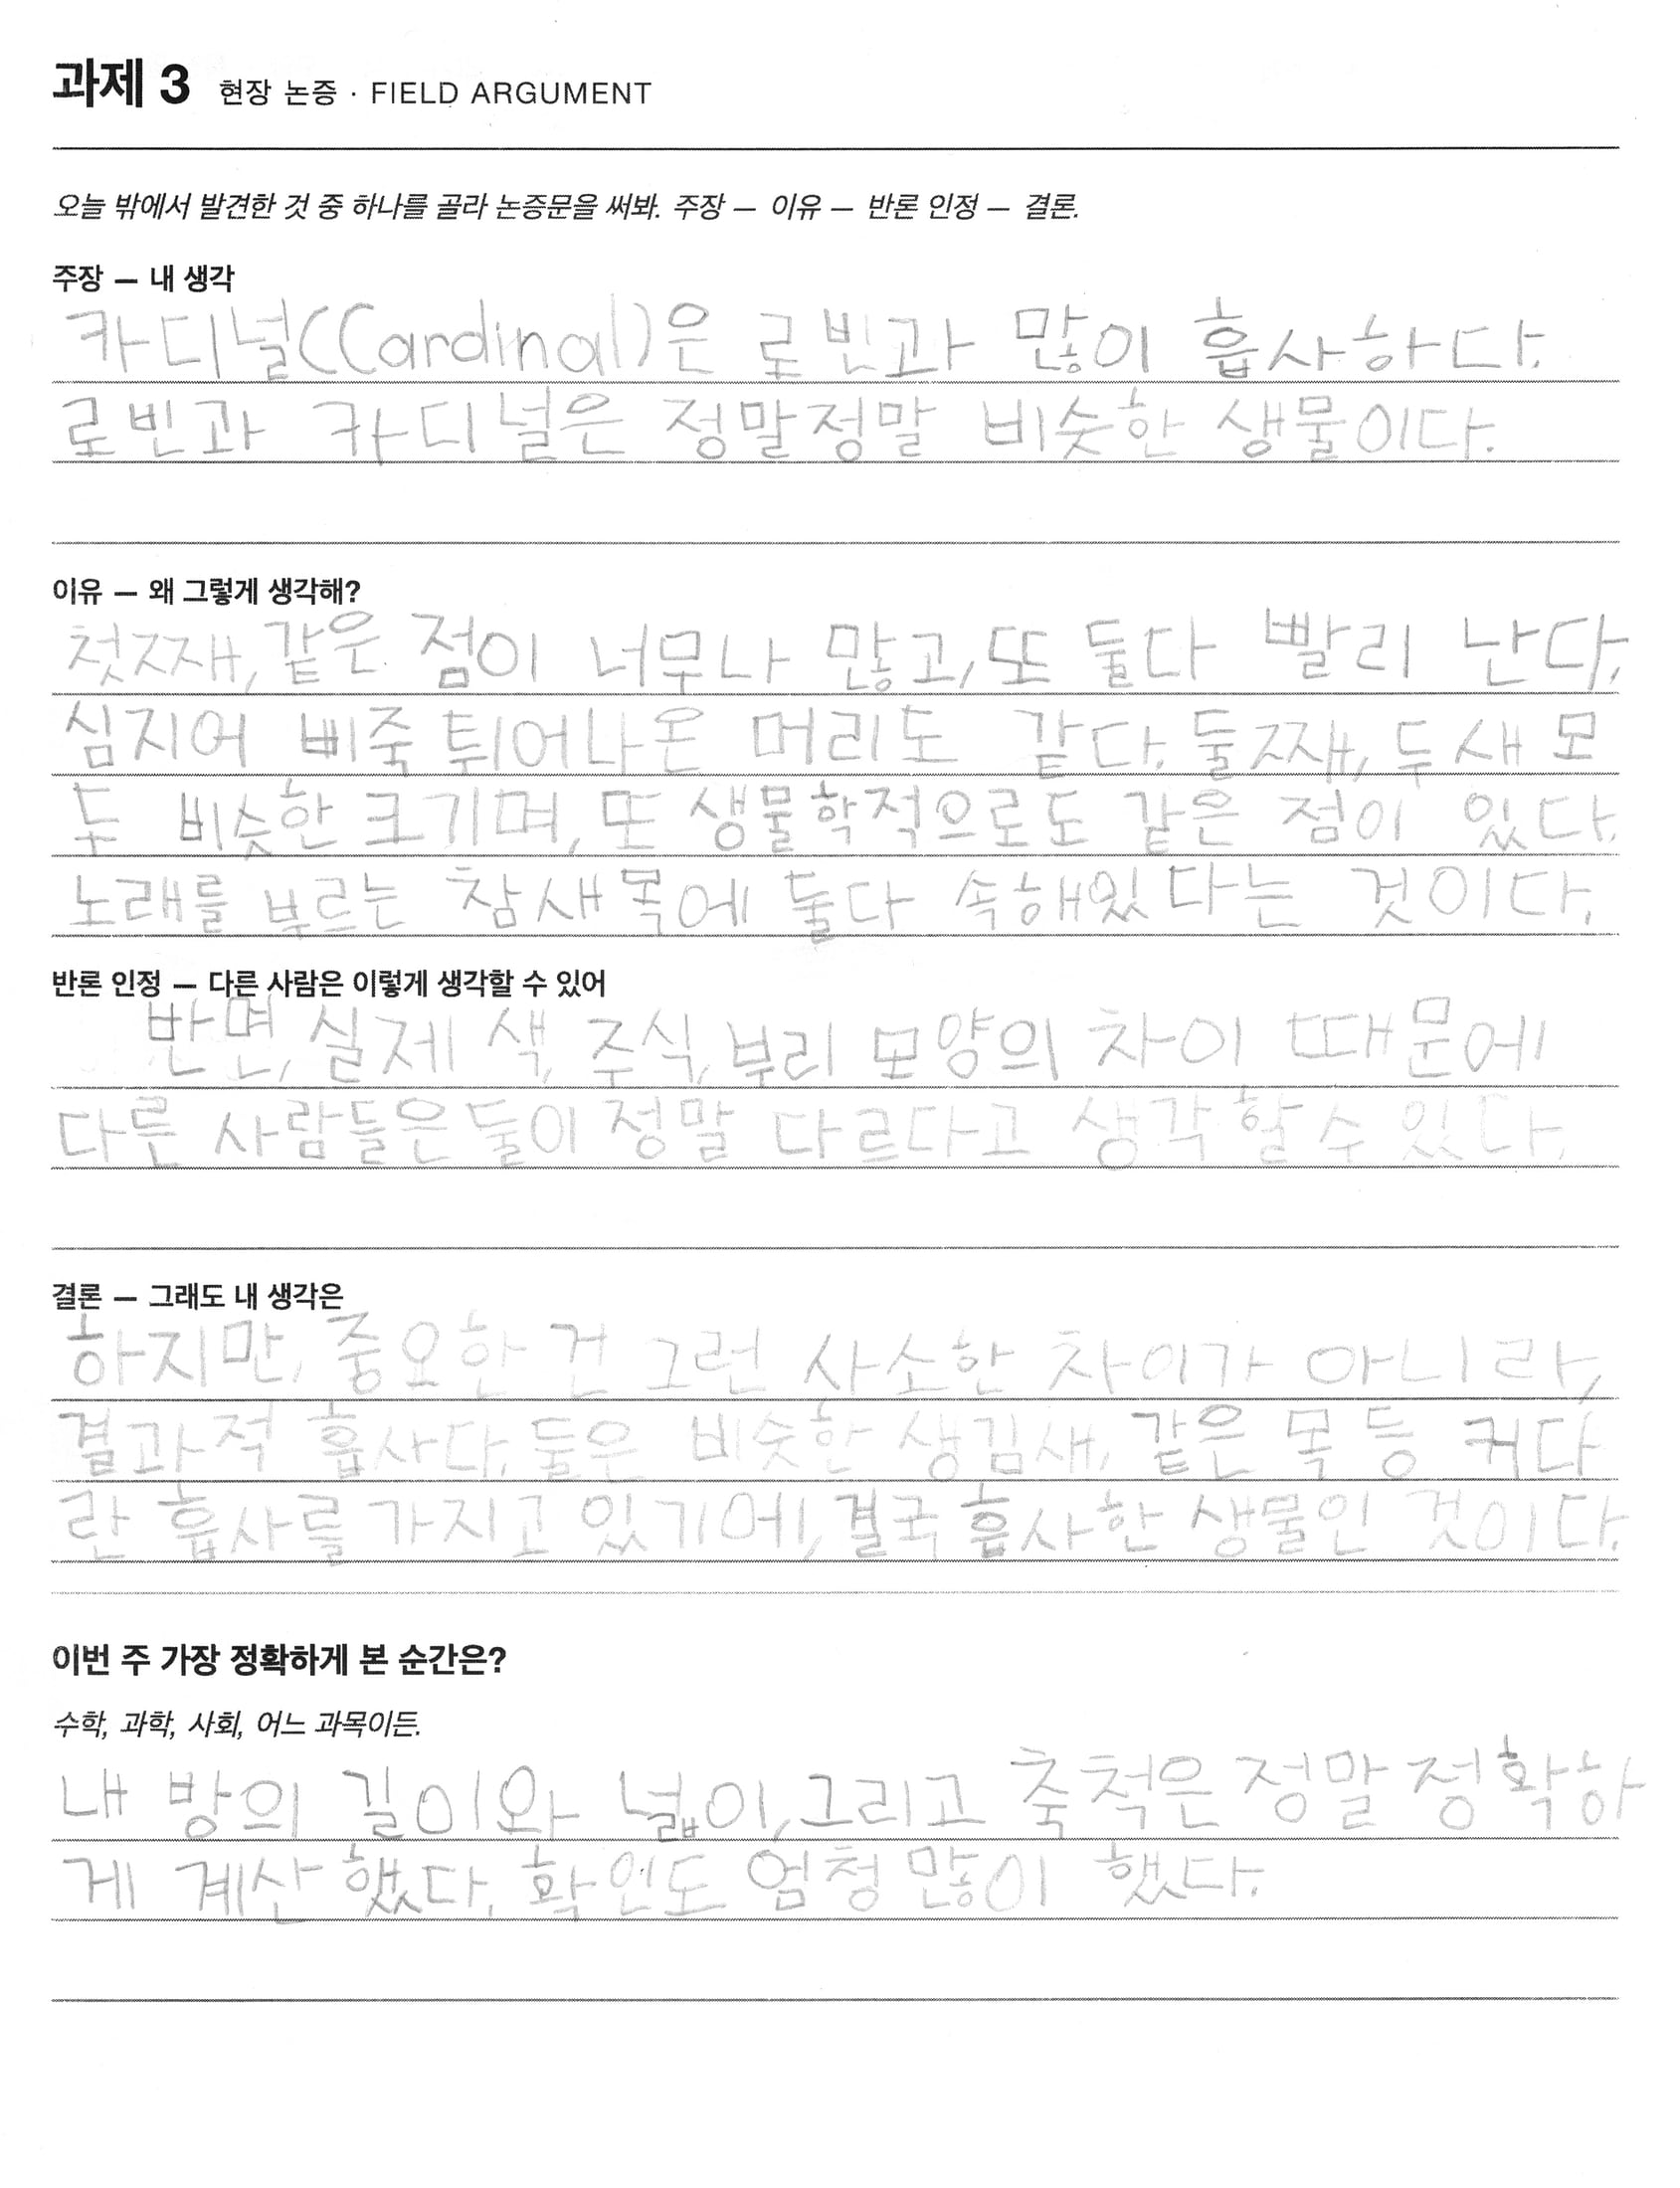 과제 3 현장 논증 · FIELD ARGUMENT
오늘 밖에서 발견한 것 중 하나를 골라 논증문을 써봐. 주장 — 이유 — 반론 인정 — 결론.
주장 — 내 생각
카디널(Cardinal)은 로빈과 많이 흡사하다.
로빈과 카디널은 정말정말 비슷한 생물이다.
이유 — 왜 그렇게 생각해?
첫째, 같은 점이 너무나 많고, 또 둘다 빨리 난다.
심지어 삐죽 튀어나온 머리도 같다. 둘째, 두 새 모
두 비슷한 크기며, 또 생물학적으로도 같은 점이 있다.
노래를 부르는 참새목에 둘다 속해있다는 것이다.
반론 인정 — 다른 사람은 이렇게 생각할 수 있어
반면, 실제 색, 주식, 부리 모양의 차이 때문에
다른 사람들은 둘이 정말 다르다고 생각할 수 있다.
결론 — 그래도 내 생각은
하지만, 중요한 건 그런 사소한 차이가 아니라,
결과적 흡사다. 둘은 비슷한 생김새, 같은 목 등 커다
란 흡사를 가지고 있기에, 결국 흡사한 생물인 것이다.
이번 주 가장 정확하게 본 순간은?
수학, 과학, 사회, 어느 과목이든.
내 방의 길이와 넓이, 그리고 축척은 정말 정확하
게 계산했다. 확인도 엄청 많이 했다.